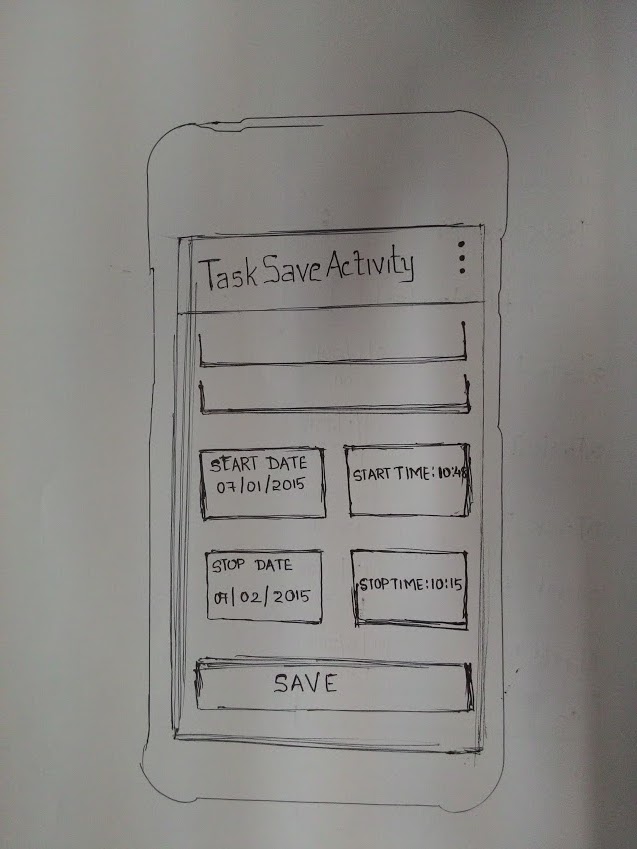 Task Save Activity
START DATE
07/01/2015
START TIME:10:48
STOP DATE
07/02/2015
STOP TIME:10:15
SAVE